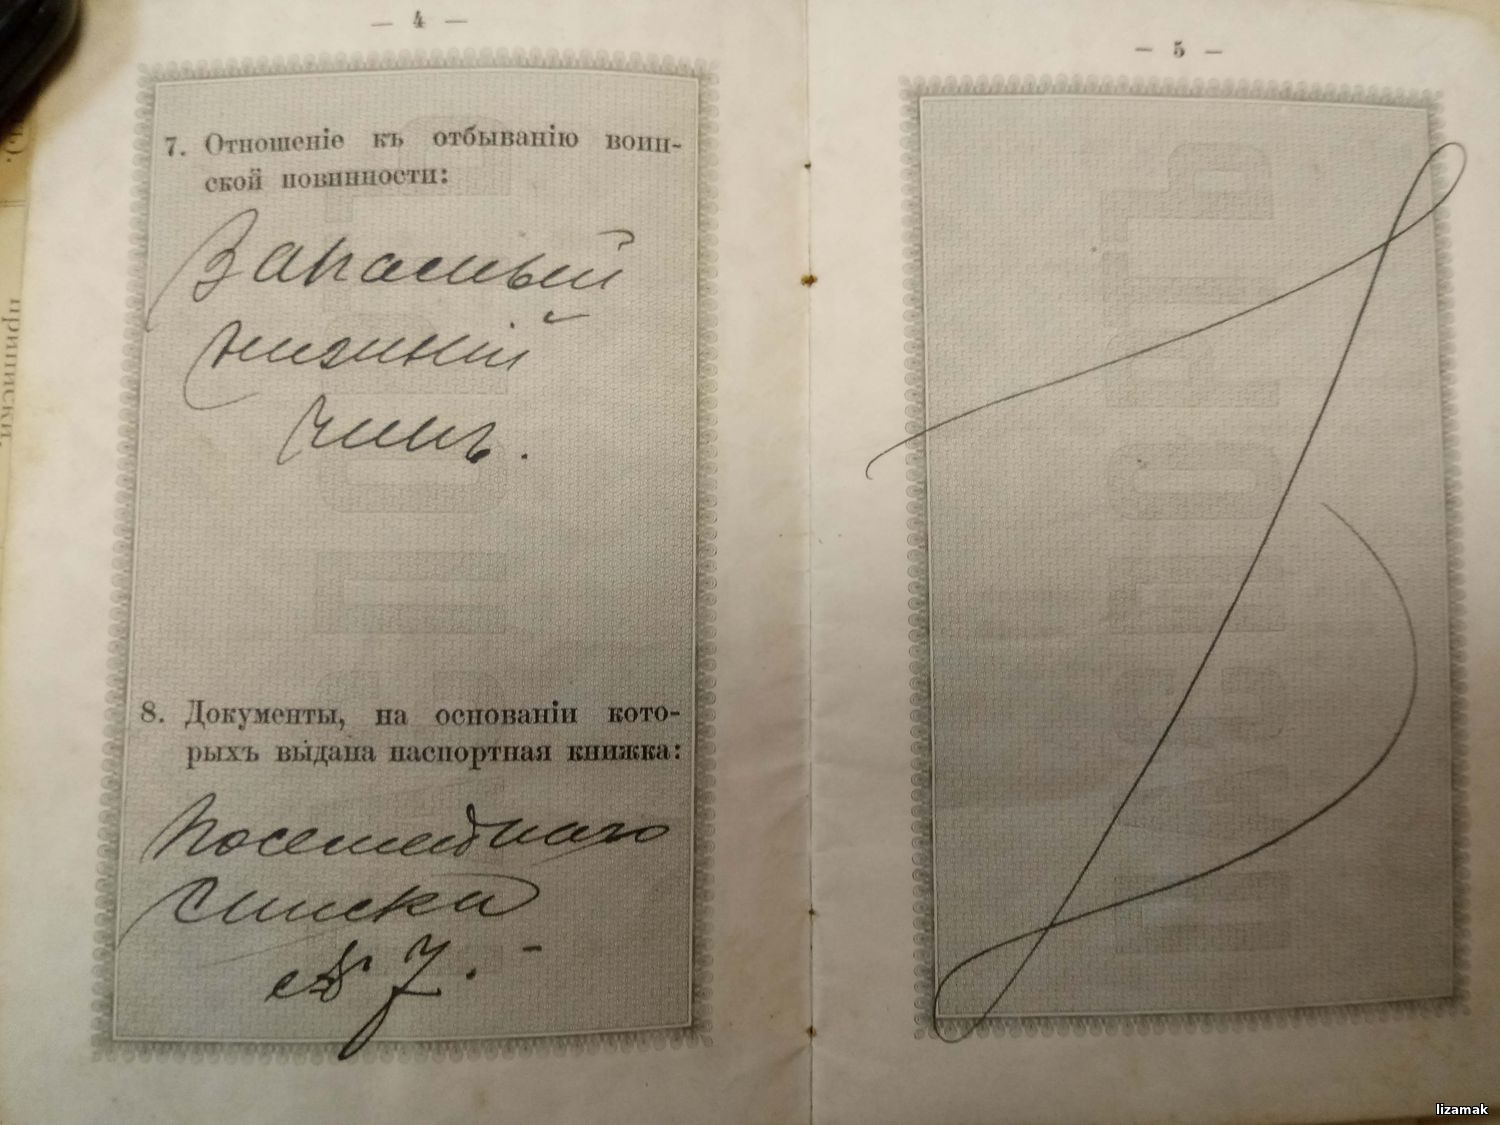 — 4 —
7. Отношеніе къ отбыванію воин-
ской повинности:
Запасный
нижній
чинъ.
8. Документы, на основаніи кото-
рыхъ выдана паспортная книжка:
Посемейнаго
списка
№ 7. -
— 5 —
приписки.
lizamak